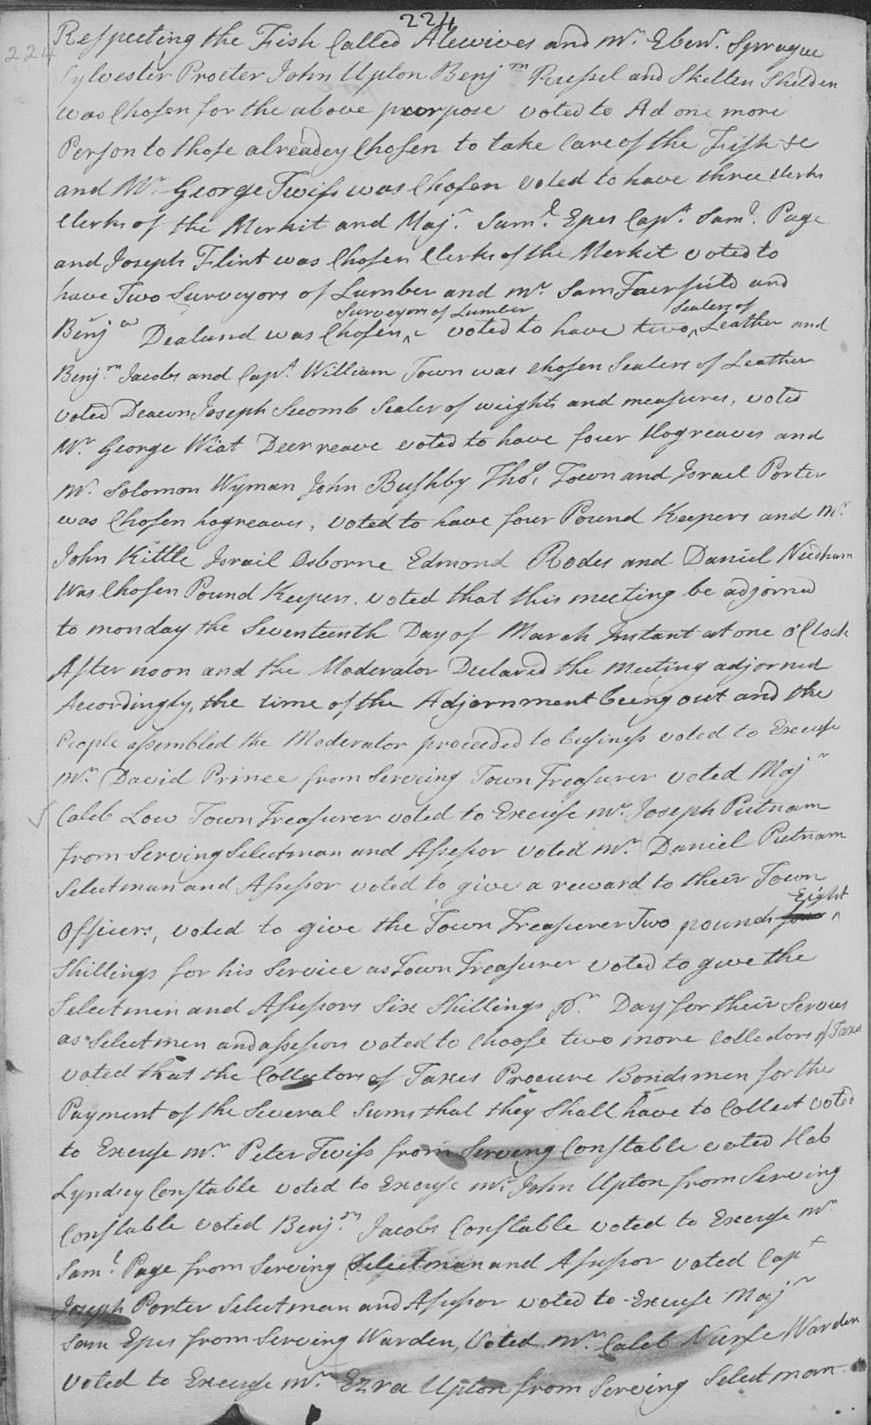 224
224
Respecting the Fish Called Alewives and mr. Ebenr. Sprague
Sylvester Procter John Upton Benjm Russel and Skelten Sheldon
was Chosen for the above purpose voted to Ad one more
Person to those alreadey Chosen to take Care of the Fish &c
and Mr. George Twiss was Chosen voted to have three Clerks
Clerks of the Merkit and Majr. Saml. Epes Capt. Saml. Page
and Joseph Flint was Chosen Clerks of the Merkit voted to
have Two Surveyors of Lumber and mr. Sam Fairfield and
Surveyors of Lumber Sealers of
Benjan Dealand was Chosen ^ voted to have two ^ Leather and
Benjm. Jacobs and Capt. William Town was chosen Sealers of Leather
voted Deacon Joseph Secomb Sealer of weights and measures, voted
Mr. George Wiat Deer reave voted to have four Hogreaves and
mr. Solomon Wyman John Bushby Thos. Town and Israel Porter
was Chosen hogreaves, voted to have four Pound Keepers and mr.
John Kittle Israil Osborne Edmond Rodes and Daniel Needham
Was Chosen Pound Keepers. voted that this meeting be adjorned
to monday the Seventeenth Day of March Instant at one oClock
After noon and the Moderator Declared the meeting adjorned
Accordingly, the time of the Adjornment being out and the
People assembled the Moderator proceeded to business voted to Excuse
mr. David Prince from Serveing Town Treasurer voted Majr
Caleb Low Town Treasurer voted to Excuse mr. Joseph Putnam
from Serving Selectman and Assessor voted mr. Daniel Putnam
Selectman and Assessor voted to give a reward to their Town
Eight
Officers, voted to give the Town Treasurer Two pounds four ^
Shillings for his Service as Town Treasurer voted to give the
Selectmen and Assessors Six Shillings pr. Day for their Servis
as Selectmen and assessors voted to Choose two more Collectors of Taxes
voted that the Collectors of Taxes Procure Bondsmen for the
Payment of the Several Sums that they Shall have to Collect voted
to Excuse mr. Peter Twiss from Serveing Constable voted Hab
Lyndsey Constable voted to Excuse mr. John Upton from Serving
Constable voted Benjm. Jacobs Constable voted to Excuse mr.
Saml. Page from Serving Selectman and Assessor voted Capt
Joseph Porter Selectman and Assessor voted to Excuse Majr
Sam Epes from Serving Warden, Voted mr. Caleb Nurse Warden
Voted to Excuse mr. Ezra Upton from Serving Selectman